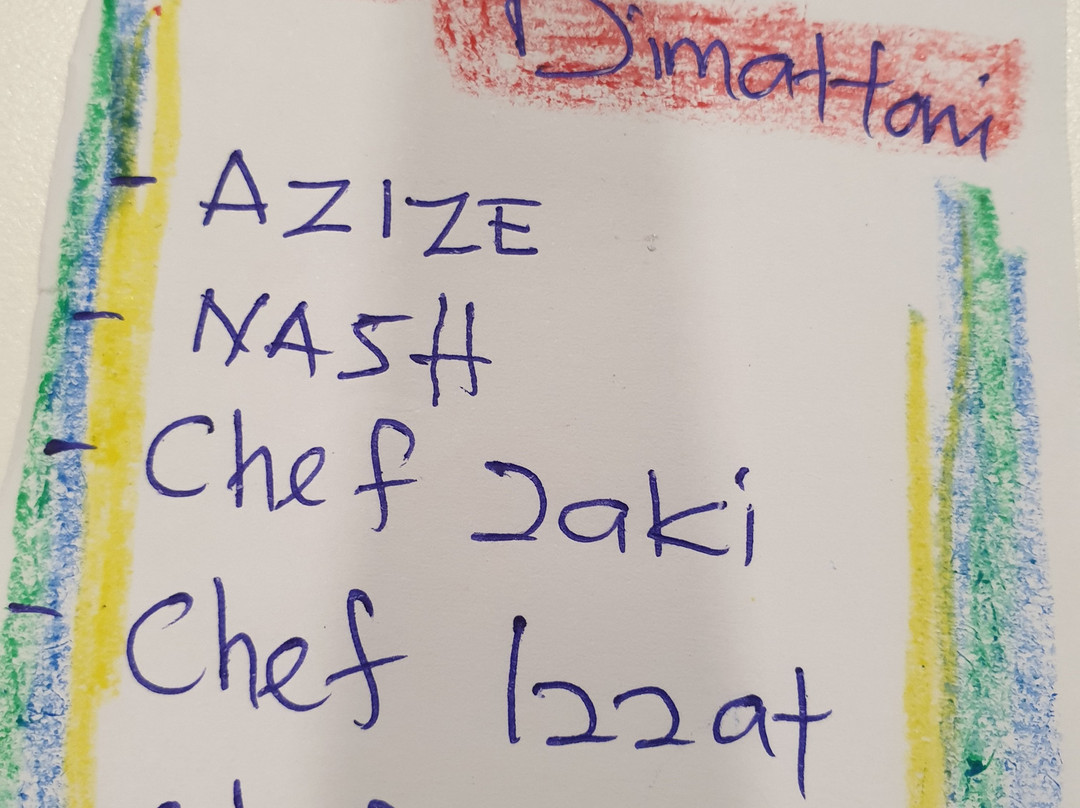 Dimattani
- AZIZE
- NASH
- Chef Zaki
- Chef Izzat